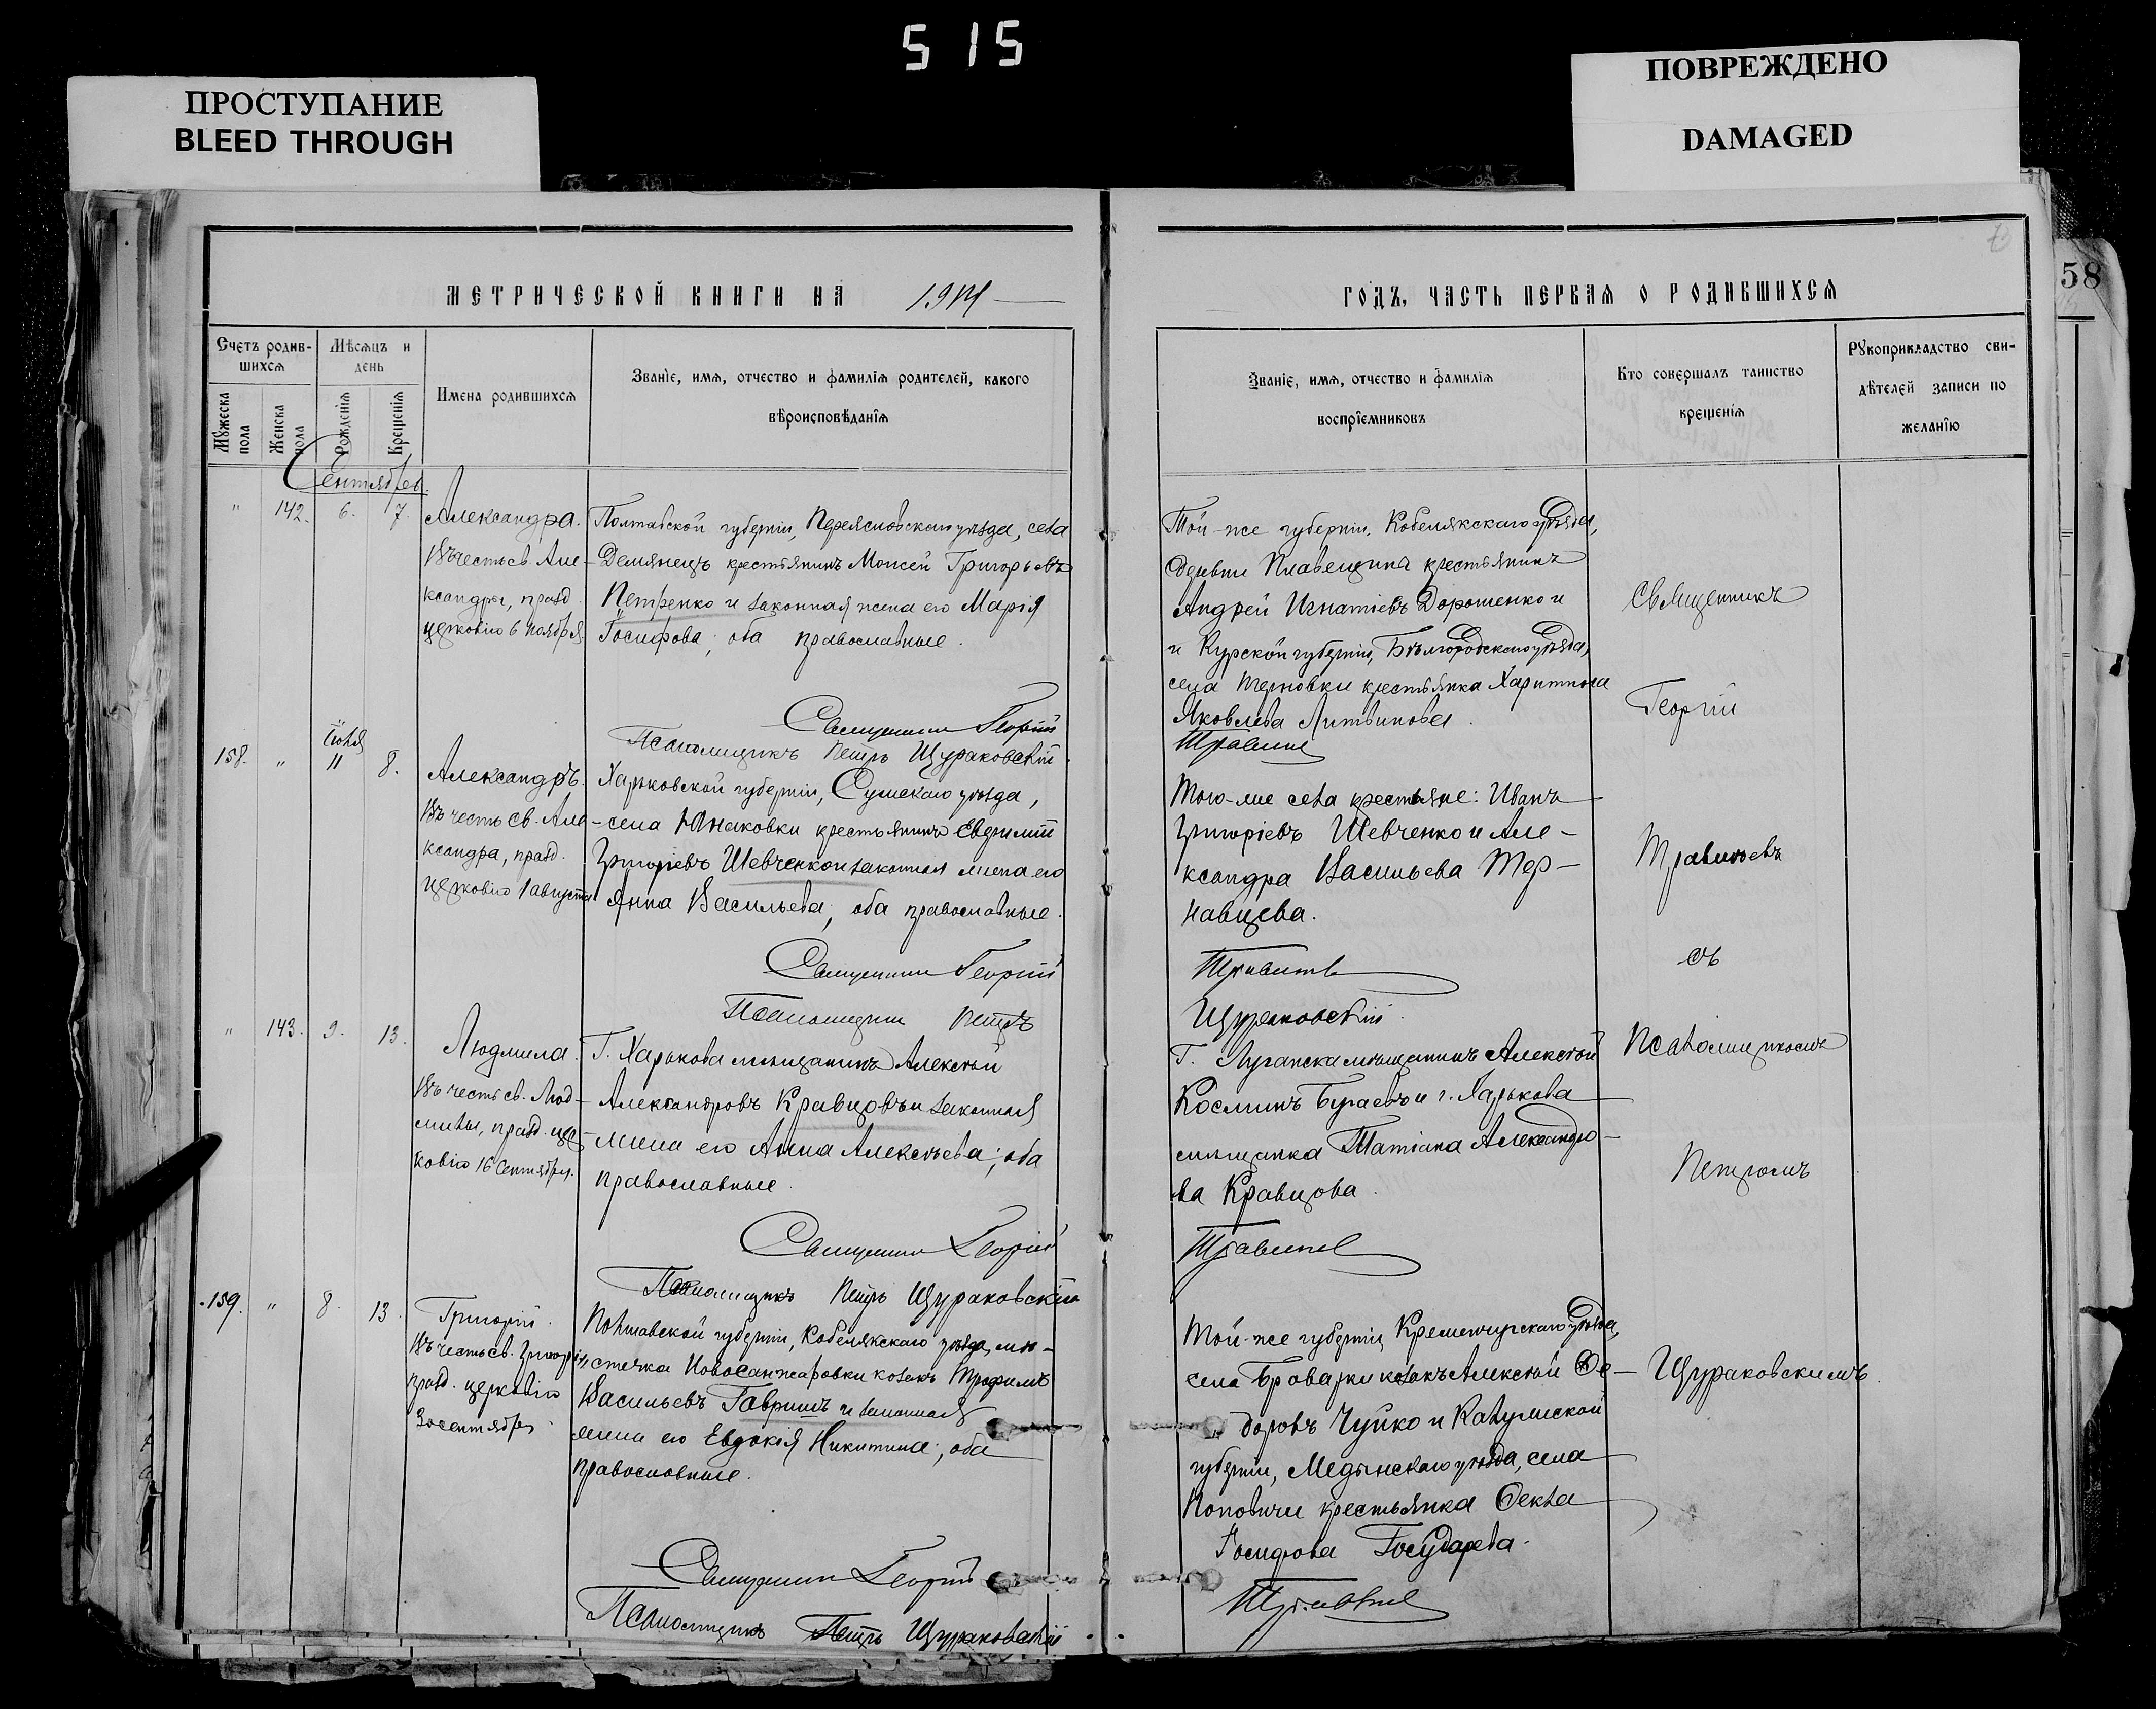 515
ПРОСТУПАНИЕ
BLEED THROUGH
ПОВРЕЖДЕНО
DAMAGED
58
МЕТРИЧЕСКОЙ КНИГИ НА
ГОДЪ, ЧАСТЬ ПЕРВАЯ О РОДИВШИХСЯ
Счетъ родив-
шихся
Мужеска пола
Женска пола
Мѣсяцъ и
день
Рожденія
Крещенія
Имена родившихся
Званіе, имя, отчество и фамилія родителей, какого
вѣроисповѣданія
Званіе, имя, отчество и фамилія
воспріемниковъ
Кто совершалъ таинство
крещенія
Рукоприкладство сви-
дѣтелей записи по
желанію
Сентябрь.
" 142. 6. 7.
Александра.
Въ честь св. Але-
ксандры, празд.
церковію 6 ноября
Полтавской губерніи, Переяславскаго уѣзда, села
Демянецъ крестьянинъ Моисей Григорьевъ
Петренко и законная жена его Марія
Іосифова; оба православные.
Священникъ Георгій
Псаломщикъ Петръ Щураковскій
Той-же губерніи, Кобелякскаго уѣзда,
деревни Плавещина крестьянинъ
Андрей Игнатіевъ Дорошенко и
и Курской губерніи, Бѣлгородскаго уѣзда,
села Терновки крестьянка
Яковлева Литвинова.
158. " Іюля 11 8.
Александръ.
Въ честь св. Але-
ксандра, празд.
церковію 1 августа
Харьковской губерніи, Сумскаго уѣзда,
села Юнаковки крестьянинъ Евфимій
Григоріевъ Шевченко и законная жена его
Анна Васильева; оба православные.
Священникъ Георгій
Псаломщикъ Петръ
Того-же села крестьяне: Иванъ
Григоріевъ Шевченко и Але-
ксандра Васильева Тер-
навцева.
Щураковскій.
" 143. 9. 13.
Людмила.
Въ честь св. Люд-
милы, празд. цер-
ковію 16 Сентября.
Г. Харькова мѣщанинъ Алексѣй
Александровъ Кравцовъ и законная
жена его Анна Алексѣева; оба
православные.
Священникъ Георгій
Псаломщикъ Петръ Щураковскій
Г. Луганска мѣщанинъ Алексѣй
Косминъ и г. Харькова
мѣщанка Татіана Александро-
ва Кравцова.
159. " 8. 13.
Григорій.
Въ честь св. Григорія,
празд. церковію
30 сентября
Полтавской губерніи, Кобелякскаго уѣзда, мѣ-
стечка Новосанжаровки козакъ Трофимъ
Васильевъ Гавришъ и законная
жена его Евдокія Никитина; оба
православные.
Священникъ Георгій
Псаломщикъ Петръ Щураковскій
Той-же губерніи, Кременчугскаго уѣзда,
села Броварки козакъ Алексѣй Ѳе-
доровъ Чуйко и Калужской
губерніи, Медынскаго уѣзда, села
Поповичи крестьянка Ѳекла
Іосифова Государева.
Священникъ
Георгій
Травиновъ
съ
Псаломщикомъ
Петромъ
Щураковскимъ.